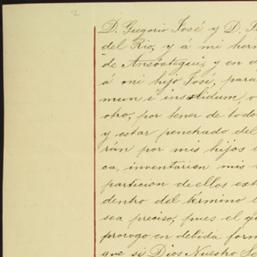 D. Gregorio José y D.
del Rio, y á mi her
de Ansóategui, y en d
á mi hijo José, para
mun é insolidum, o
otro, por tener de todo
y estar penchado del
rán por mis hijos
ca, inventarien mis
particion de ellos ext
dentro del termino
sea preciso, pues el q
prorogo en debida form
que si Dios Nuestro Se